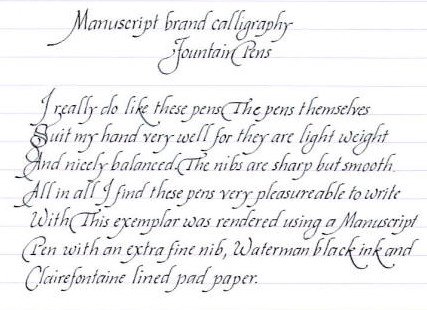 Manuscript brand calligraphy
Fountain Pens
I really do like these pens. The pens themselves
Suit my hand very well for they are light weight
And nicely balanced. The nibs are sharp but smooth.
All in all I find these pens very pleasureable to write
With. This exemplar was rendered using a Manuscript
Pen with an extra fine nib, Waterman black ink and
Clairefontaine lined pad paper.